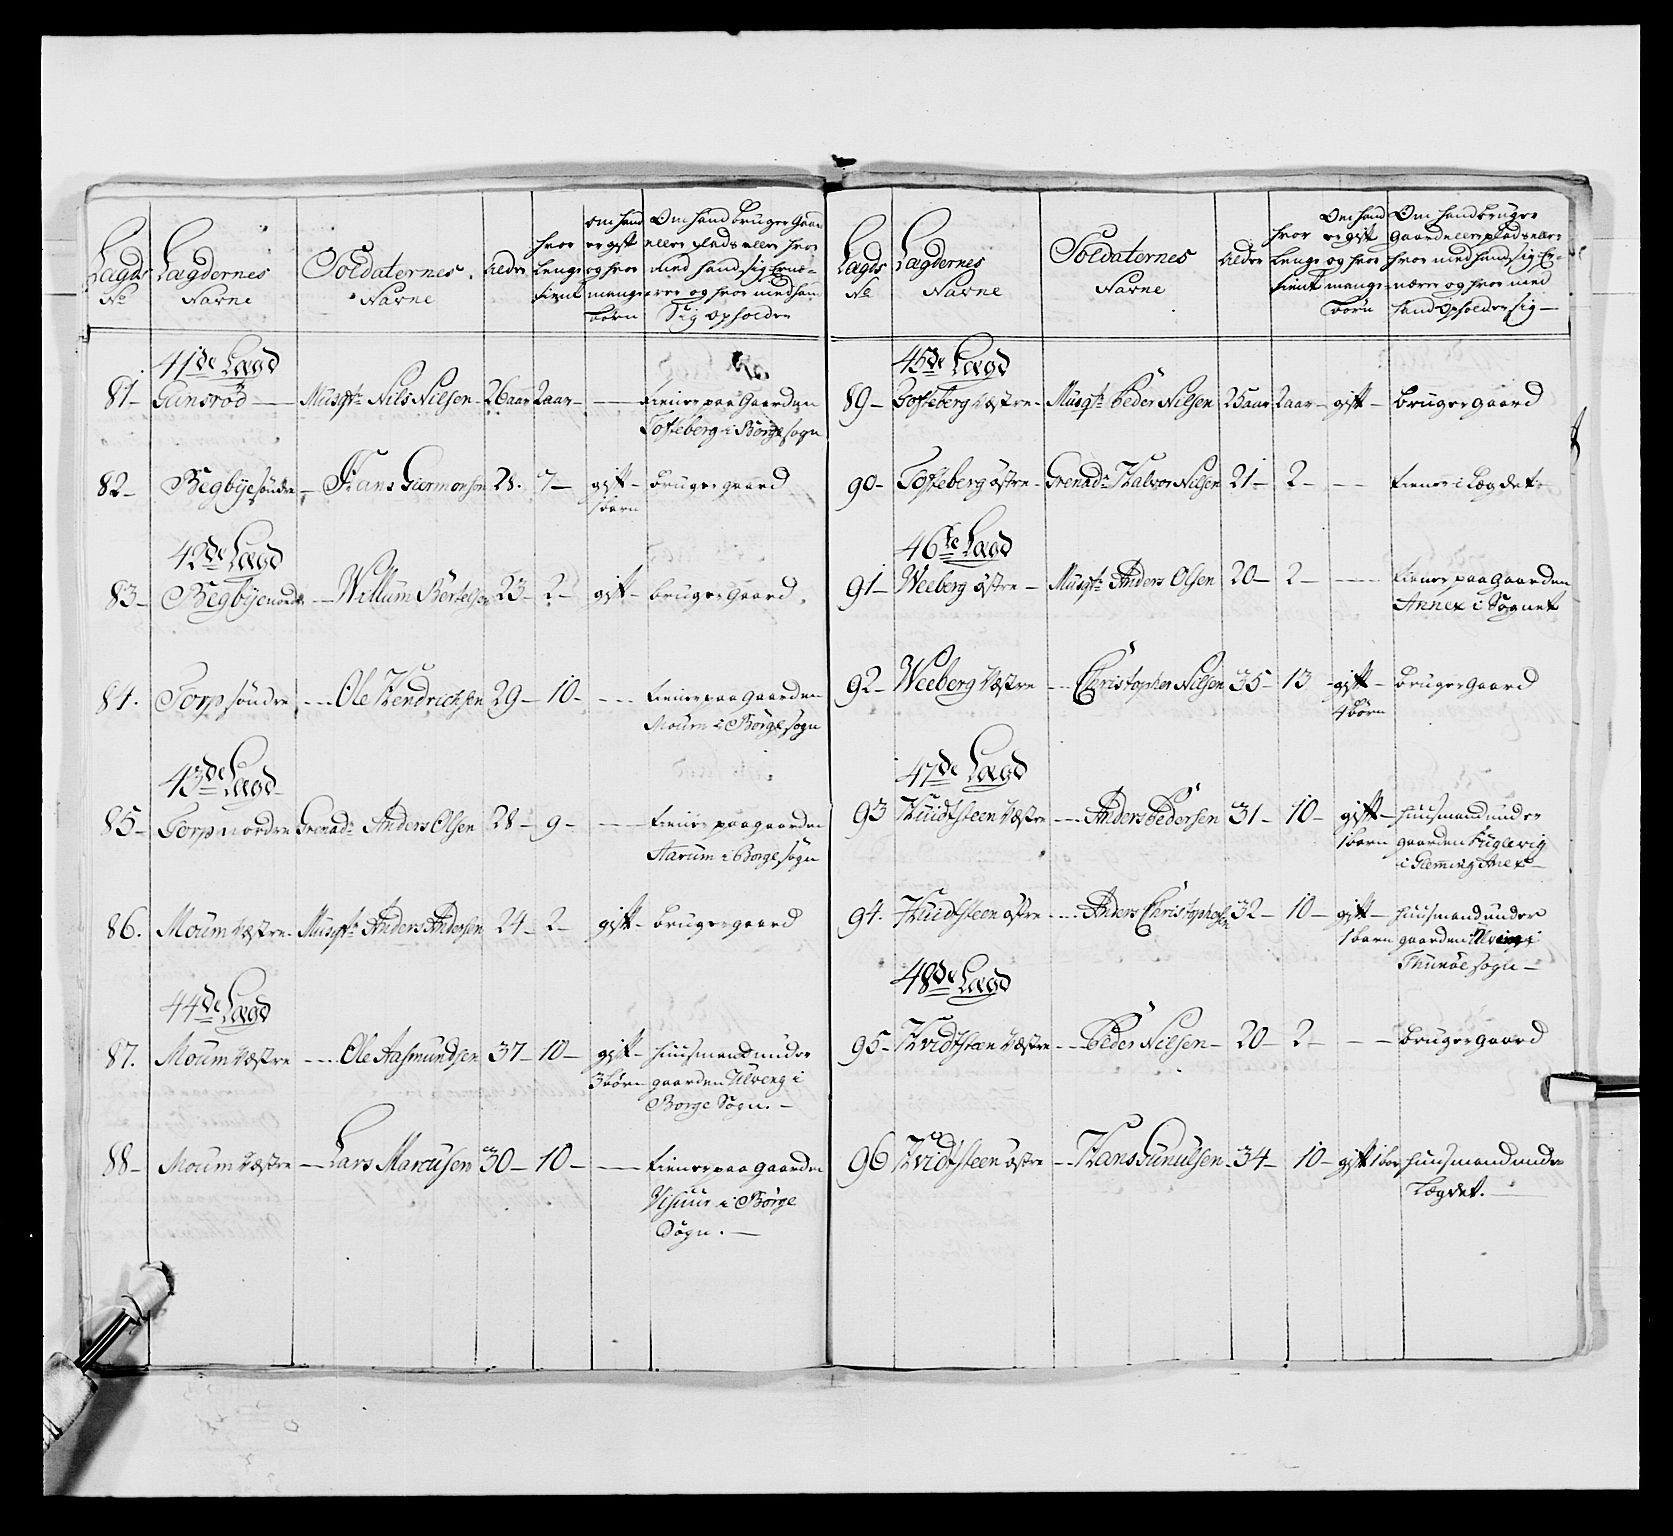 Lægds No
Lægdernes Navne
Soldaternes Navne
Alder
hvor lenge tient
Om hand er gift og hvor mange børn
Om hand bruger Gaard eller plads eller hvor med hand sig Ernærer og hvor med hand Sig opholder
41de Lægd
81- Gunsrød - Musqt: Nils Nilsen - 26 aar 2 aar - - tiener paa Gaarden
Tofteberg i Borge sogn
82- Begbye søndre - Hans Giermonsøn 28. 7- gift- bruger gaard
1 barn
42de Lægd
83- Begbye nordre - Willum Bertelsen 23- 2- gift- bruger Gaard.
84. Torp søndre - Ole Hendrichsen 29- 10- - tiener paa Gaarden
Moum i Borge sogn
43de Lægd
85- Torp nordre Grenad: Anders Olsen 28- 9- - tiener paa gaarden
Aarum i Borge sogn
86. Moum Væstre- Musqt: Anders Andersen 24- 2- gift- bruger gaard
44de Lægd
87. Moum Væstre - Ole Aasmundsen 37- 10- gift- Huusmand under
3 børn gaarden Ulveng i
Borge Sogn. -
88- Moum Væstre - Lars Marcusen 30- 10- - tiener paa gaarden
i Borge
Sogn. -
Lægds No
Lægdernes Navne
Soldaternes Navne
Alder
hvor lenge tient
Om hand er gift og hvor mange børn
Om hand bruger Gaard eller plads eller hvor med hand sig Ernærer og hvor med hand Opholder sig -
45de Lægd
89- Tofteberg Væstre- Musqt: Peder Nilsen 25 aar 2 aar- gift- bruger gaard
90- Tofteberg østre- Grenad: Halvor Nilsen 21- 2- - tiener i Lægdet-
46te Lægd
91- Weeberg østre- Musqt: Anders Olsen 20- 2- - tiener paa gaarden
Annex i Sognet
92- Weeberg Væstre - Christopher Nilsen 35- 13 gift- bruger Gaard
4 børn
47de Lægd
93 Huidtsteen Væstre - Anders Pedersen 31- 10- gift- Huusmand under
1 barn gaarden Kuglevig
i Glemmig Anex-
94. Huidtsteen østre - Anders Christophersen 32- 10- gift- Huusmand under
1 barn gaarden i
Thunøe sogn-
48de Lægd
95- Hvidtsteen Væstre - Peder Nilsen- 20- 2- - bruger gaard
96 Hvidtsteen østre - Hans Gunulsen 34- 10- gift 1 bar Huusmand under
Lægdet. -